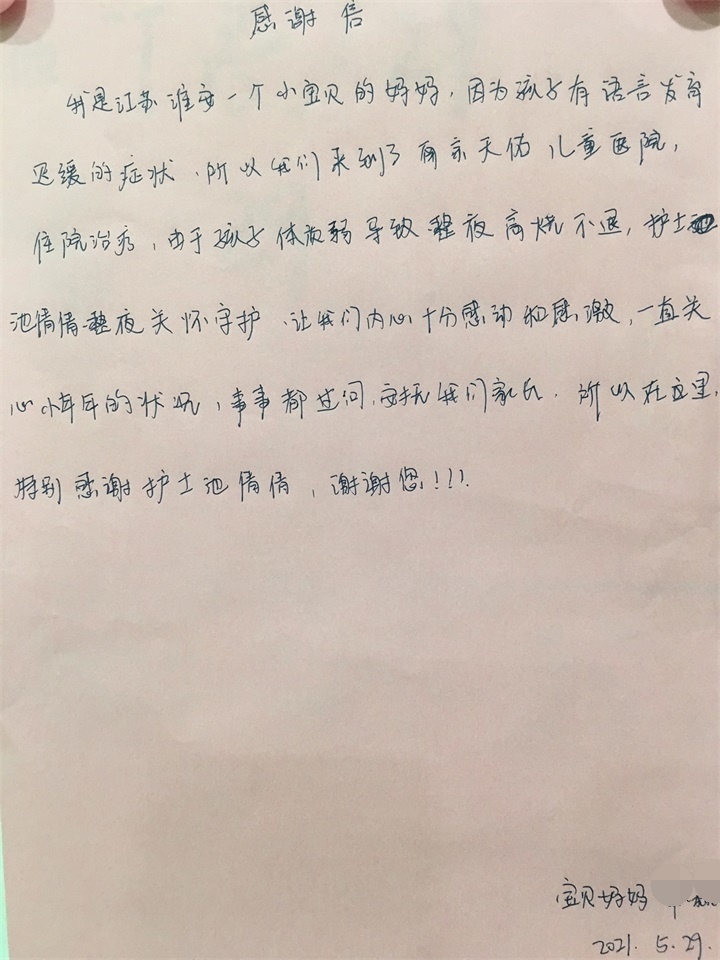 感谢信
我是江苏淮安一个小宝贝的妈妈，因为孩子有语言发育
迟缓的症状，所以我们来到了南京天佑儿童医院，
住院治疗，由于孩子体质弱导致整夜高烧不退，护士
池倩倩整夜关怀守护，让我们内心十分感动和感激，一直关
心小年年的状况，事事都过问，安抚我们家长。所以在这里，
特别感谢护士池倩倩，谢谢您！！！
宝贝妈妈
2021.5.29.